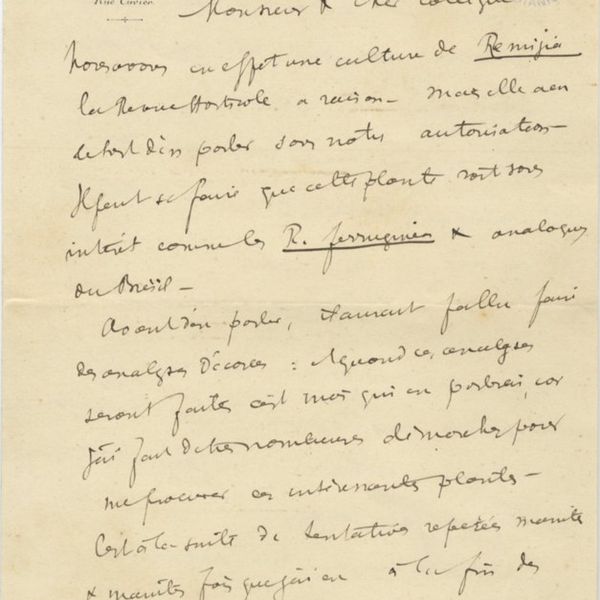 Rue Cuvier
Monsieur & cher collègue
Nous avons en effet une culture de Remijia
la Revue Horticole a raison – mais elle a eu
le tort d'en parler sans notre autorisation –
Il peut se faire que cette plante soit sans
intérêt comme les R. ferruginea & analogues
du Brésil –
Avant d'en parler, il aurait fallu faire
des analyses d'écorces : & quand ces analyses
seront faites c'est moi qui en parlerai, car
j'ai fait de très nombreuses démarches pour
me procurer ces intéressantes plantes –
C'est à la suite de tentatives répétées maintes
& maintes fois que j'ai eu à la fin des